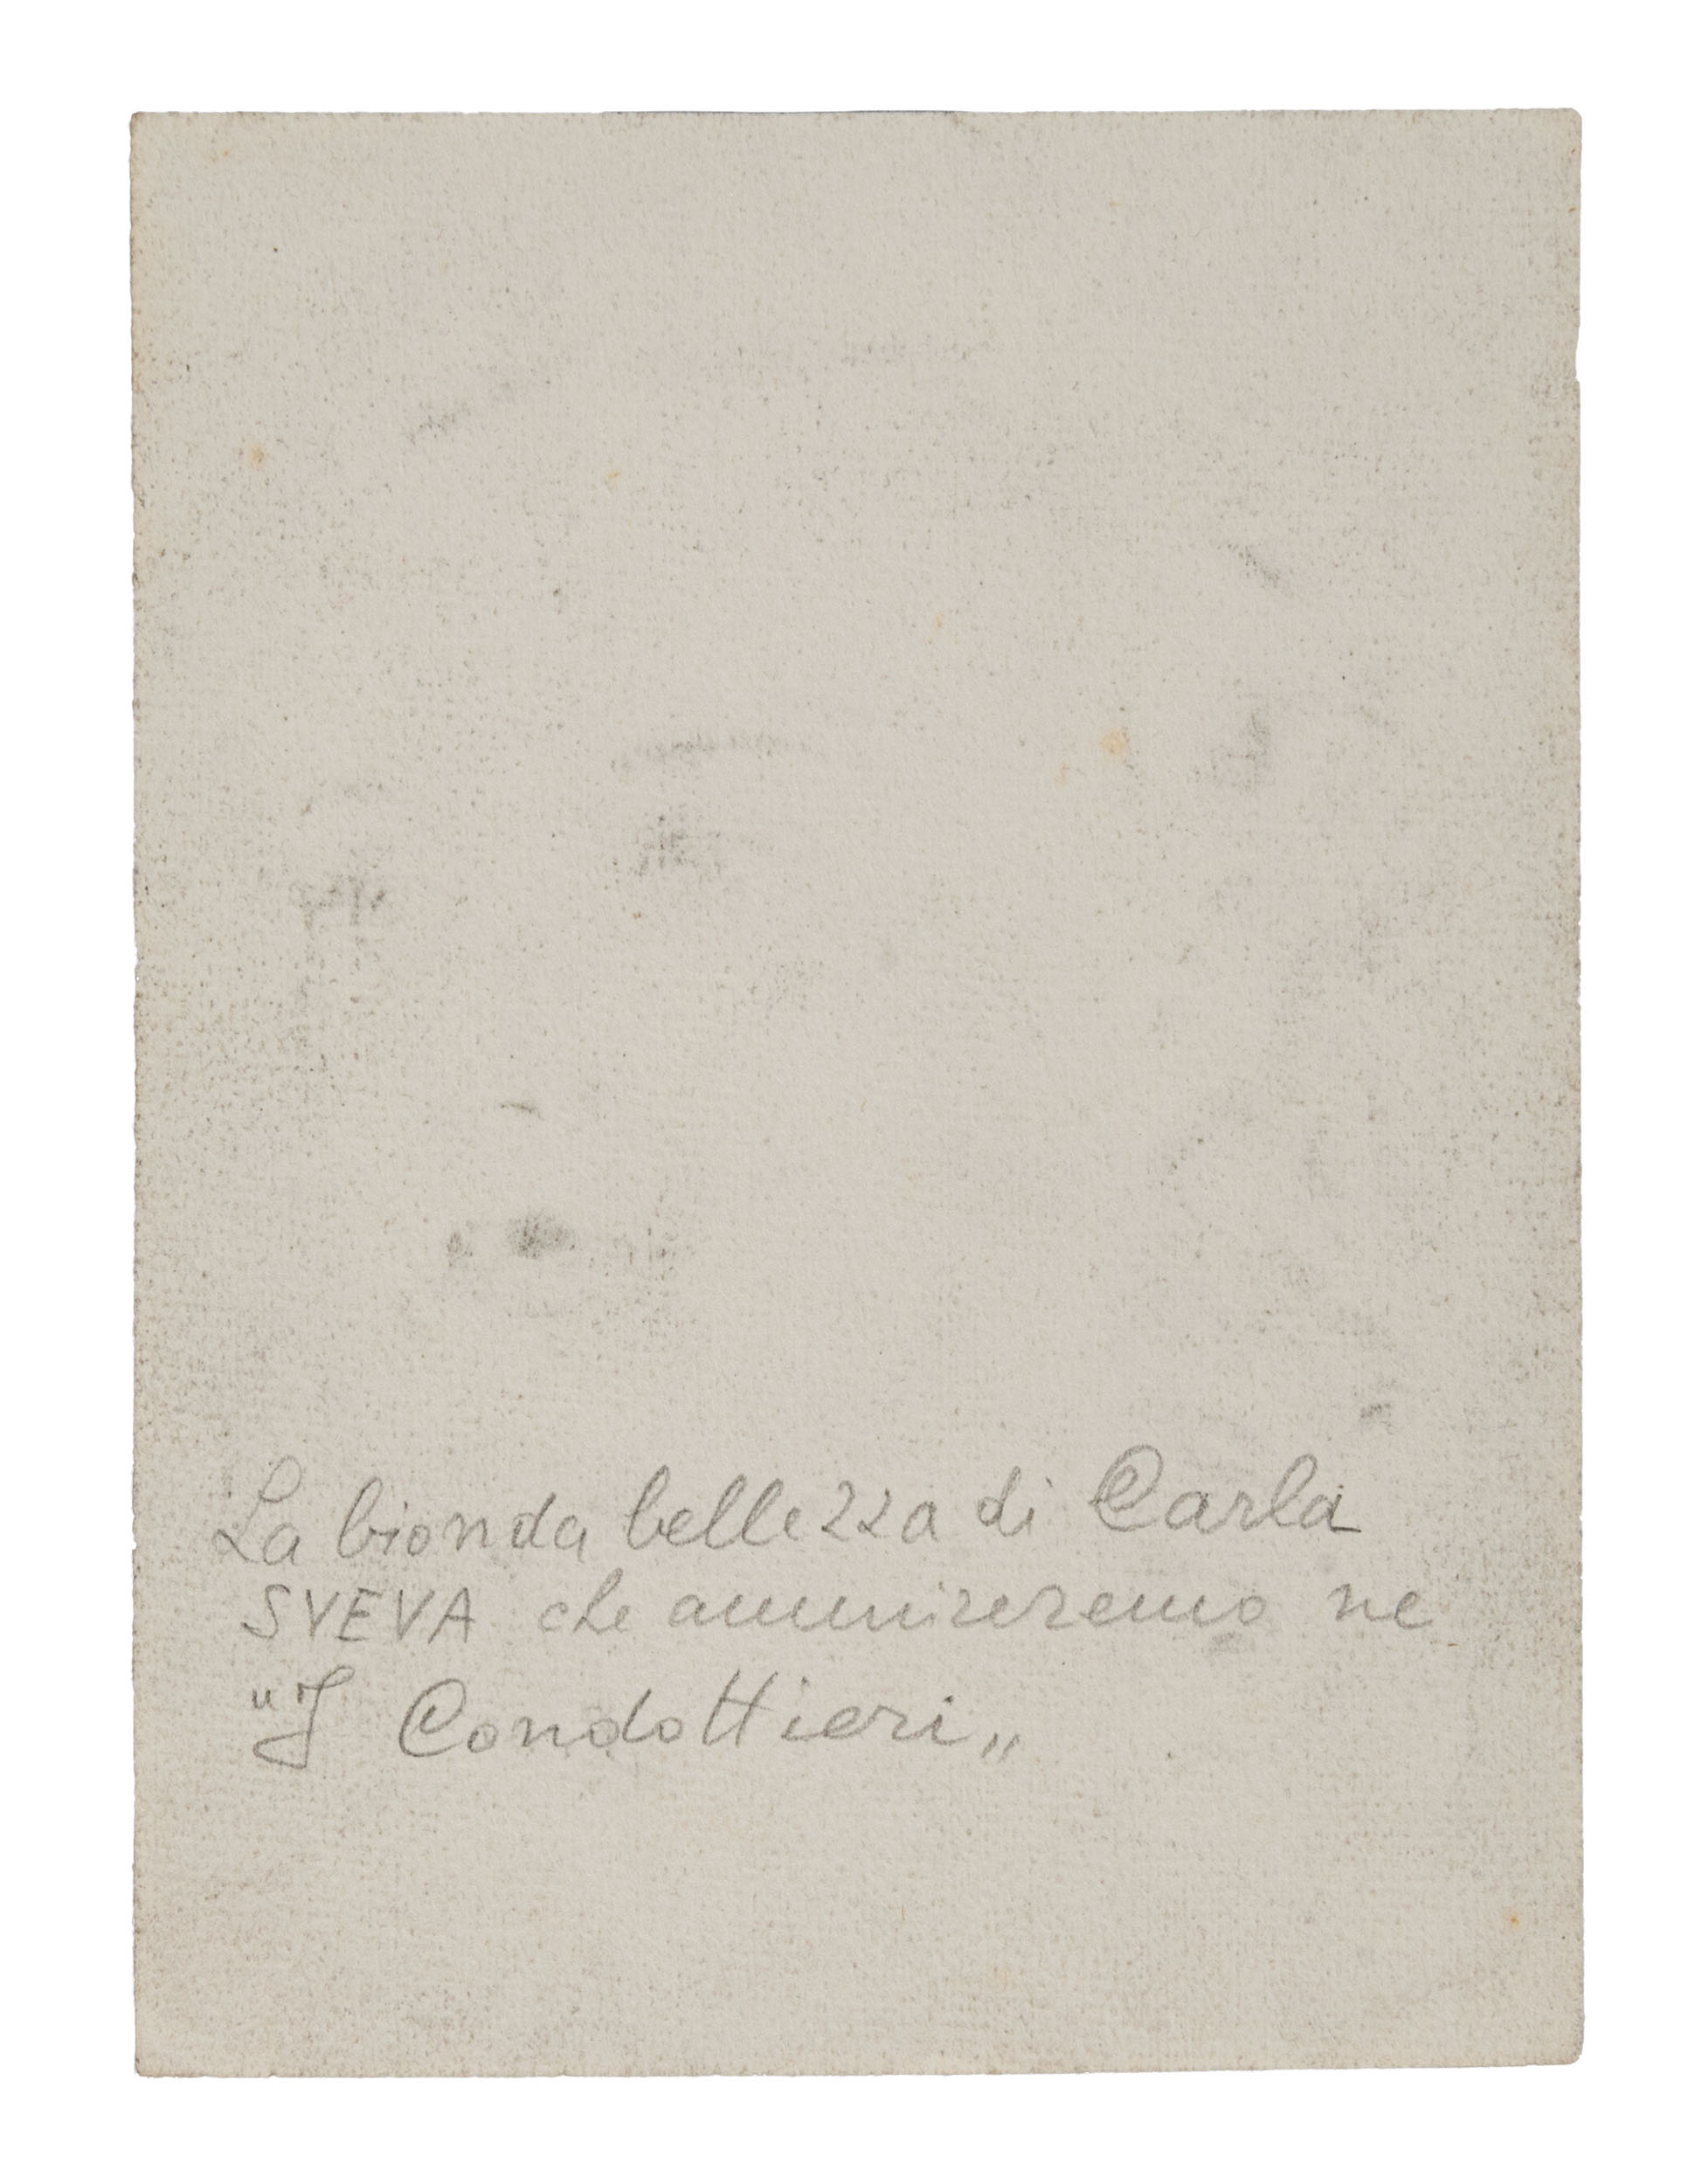 La bionda bellezza di Carla
SVEVA che ammireremo ne
"I Condottieri„